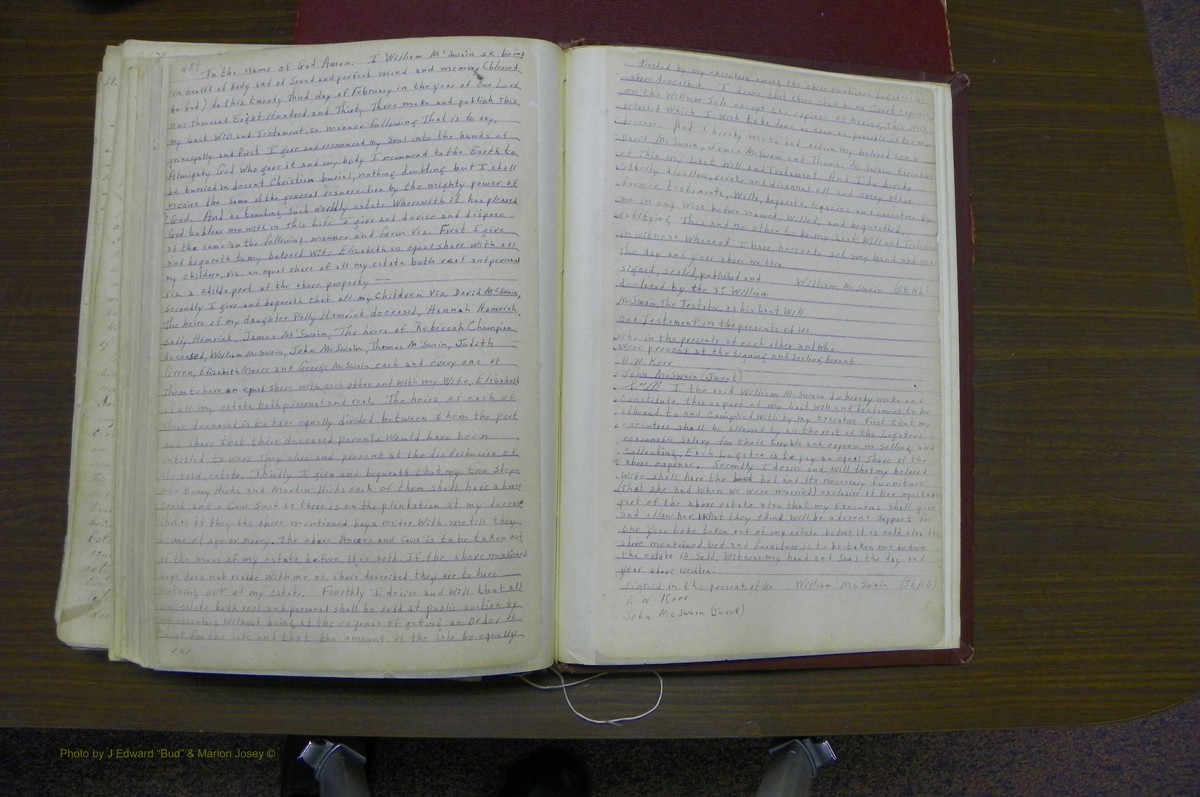 In the name of God Amen. I William McSwain sr being
in health of body and of sound and perfect mind and memory (blessed
be God) do this twenty third day of February in the year of Our Lord
one thousand Eight Hundred and Thirty Three make and publish this
my last Will and Testament in manner following That is to say,
principally and first I give and recommend my Soul into the hands of
Almighty God who gave it and my body I recommend to the Earth to
be burried in decent Christian burial, nothing doubting but I shall
receive the same at the general resurrection by the mighty power of
God. And as touching Such worldly estate Wherewith it has pleased
God to bless me with in this life I give and devise and dispose
of the same in the following manner and form viz. First I give
and bequeath to my beloved Wife Elizabeth an equal share With all
my children, viz. an equal share of all my estate both real and personal
viz a childs part of the above property
Secondly I give and bequeath that all my Children viz David McSwain,
The heirs of my daughter Polly Hamrick deceased, Hannah Hamrick,
Sally Hamrick, James McSwain, The heirs of Rebeccah Champion
deceased, William McSwain, John McSwain, Thomas McSwain, Judith
Green, Elizabeth and George McSwain each and every one of
Them to have an equal share with each other and with my Wife, Elizabeth
of all my estate both personal and real, The heirs of each of
those deceased is to have equally divided between them the part
and share that their deceased parents Would have been
entitled to were They alive and present at the distribution of
the said estate. Thirdly I give and bequeath that my two Step
sons Hicks and Martin Hicks each of them shall have a horse
and a Cow Such as there is on the plantation at my decease
that is if they the above mentioned boys reside With me till they
come of age or marry. The above Horses and Cows is to be taken out
of the mass of my estate before it is sold. If the above mentioned
boys does not reside With me as above described they are to have
nothing out of my estate. Fourthly I desire and Will that all
my estate both real and personal shall be sold at public auction by
my executors Without being at the expense of getting an Order of
Court for the Sale and that the amount of the Sale be equally
divided by my executors among the above mentioned legatees as
above described. I desire that there shall be no Court expense
on the Will nor Sale except the expense of having this Will
recorded Which I wish to be done as soon as possible after my
decease. And I hereby make and ordain my beloved sons
David McSwain, James McSwain and Thomas McSwain Executors
of This my last Will and Testament. And I do hereby
utterly disallow, revoke and disannul all and every other
former testaments, Wills, bequests, legacies and executors by
me in any Wise before named, Willed, and bequeathed,
ratifying This and no other to be my last Will and Testament
In Witness Whereof I have hereunto set my hand and seal
The day and year above written
signed, sealed, published and William McSwain (SEAL)
declared by the sd William
McSwain, The Testator as his last Will
and Testament in the presents of us
who in the presents of each other and
were present at the signing and sealing hereof
H. W. Kerr
John McSwain (Jurat)
I the said William McSwain do hereby make and
Constitute this as part of my last Will and Testament to be
adhered to and complied With by my executors First that my
executors shall be allowed by all the rest of the legatees a
reasonable Salary for their trouble and expense in selling and
collecting, Each Legatee is to pay an equal Share of the
above expense. Secondly I desire and Will that my beloved
Wife shall have the bed and its necessary furniture
(that she had When we were married) exclusive of her equitable
part of the above estate also that my Executors Shall give
and allow her What they think Will be a decent support for
one year to be taken out of my estate before it is sold also the
above mentioned bed and furniture is to be taken out before
the estate is sold, Witness my hand and Seal the day and
year above written.
signed in the present of us William McSwain (SEAL)
H. W. Kerr
John McSwain (Jurat)
Photo by J Edward "Bud" & Marion Josey ©